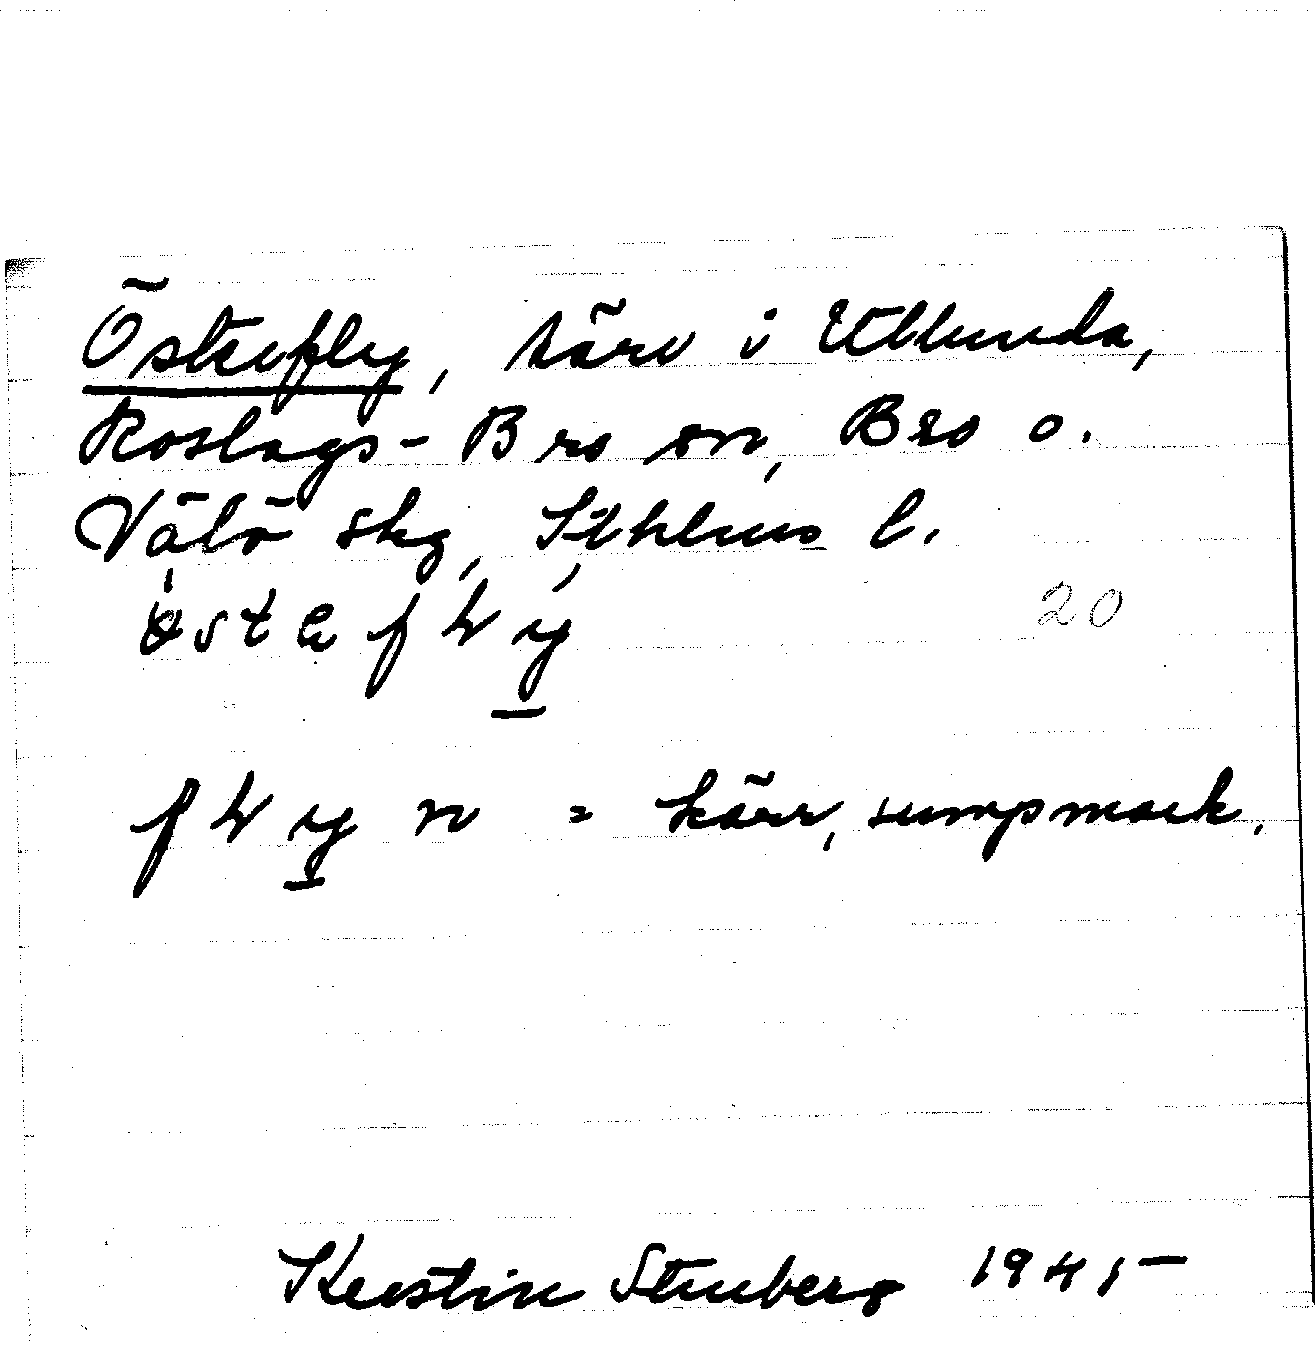 Österfly, kärr i Utlunda,
Roslags-Bro sn, Bro o.
Vätö skg, Sthlms l.
20
= kärr, sumpmark.
Kerstin Stenberg 1945